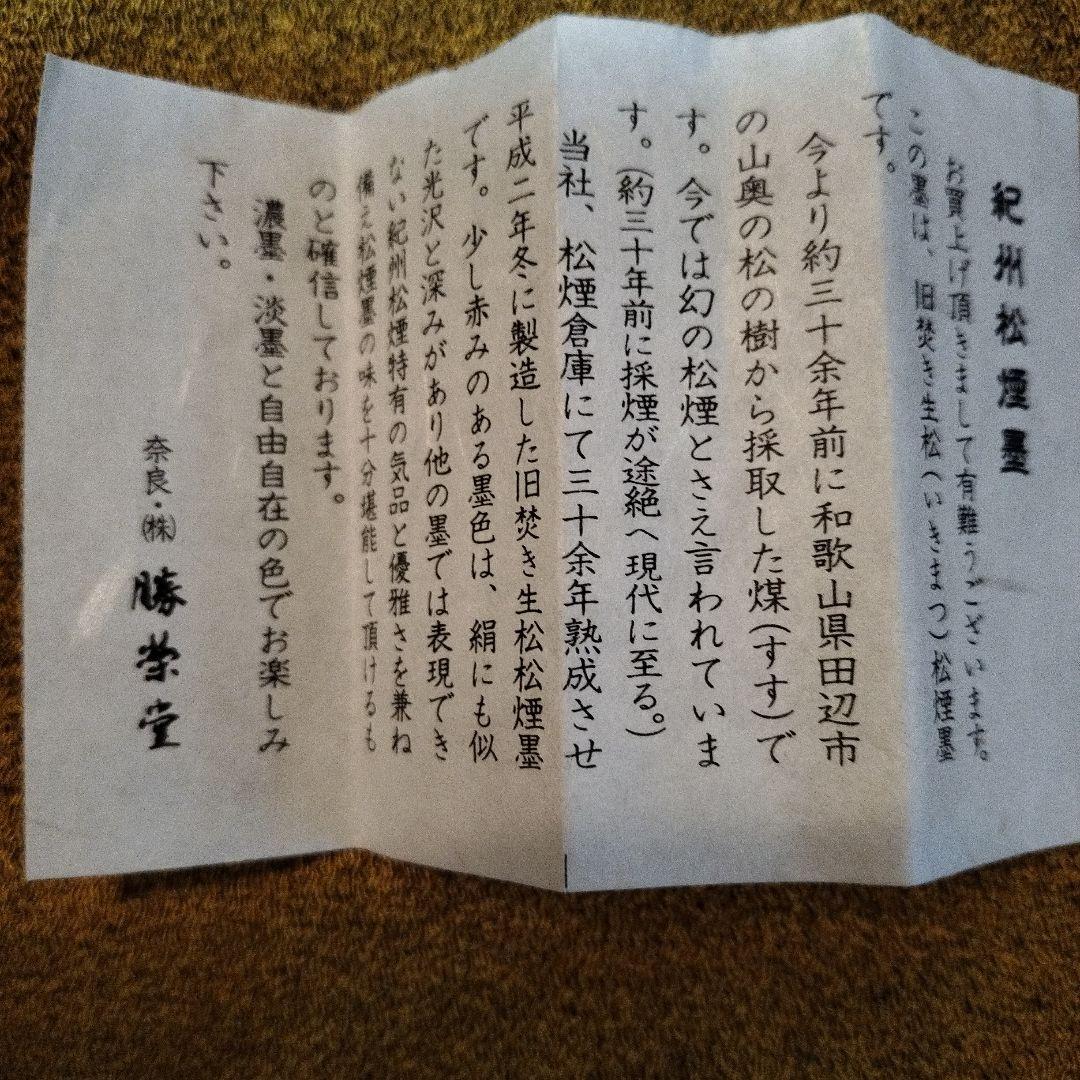 紀州松煙墨
お買上げ頂きまして有難うございます。
この墨は、旧焚き生松(いきまつ)松煙墨
です。
今より約三十余年前に和歌山県田辺市
の山奥の松の樹から採取した煤(すす)で
す。今では幻の松煙とさえ言われていま
す。(約三十年前に採煙が途絶へ現代に至る。)
当社、松煙倉庫にて三十余年熟成させ
平成二年冬に製造した旧焚き生松松煙墨
です。少し赤みのある墨色は、絹にも似
た光沢と深みがあり他の墨では表現でき
ない紀州松煙特有の気品と優雅さを兼ね
備え松煙墨の味を十分堪能して頂けるも
のと確信しております。
濃墨・淡墨と自由自在の色でお楽しみ
下さい。
奈良・㈱ 勝栄堂